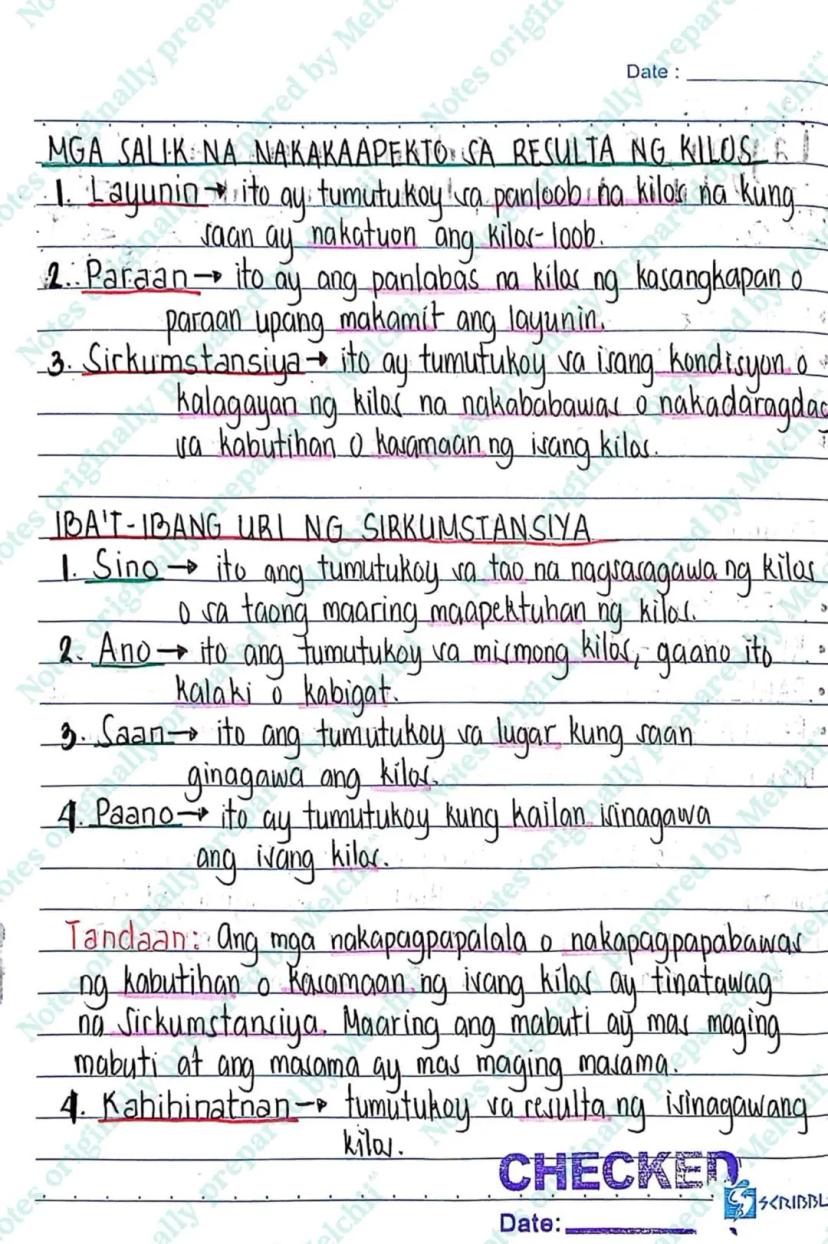 Date :
MGA SALIK NA NAKAKAAPEKTO SA RESULTA NG KILOS
1. Layunin → ito ay tumutukoy sa panloob na kilos na kung
saan ay nakatuon ang kilos-loob.
2. Paraan → ito ay ang panlabas na kilos ng kasangkapan o
paraan upang makamit ang layunin.
3. Sirkumstansiya → ito ay tumutukoy sa isang kondisyon o
kalagayan ng kilos na nakababawas o nakadaragdag
sa kabutihan o kasamaan ng isang kilos.
IBA'T-IBANG URI NG SIRKUMSTANSIYA
1. Sino → ito ang tumutukoy sa tao na nagsasagawa ng kilos
o sa taong maaring maapektuhan ng kilos.
2. Ano → ito ang tumutukoy sa mismong kilos, gaano ito
kalaki o kabigat.
3. Saan → ito ang tumutukoy sa lugar kung saan
ginagawa ang kilos.
4. Paano → ito ay tumutukoy kung kailan isinagawa
ang isang kilos.
Tandaan: Ang mga nakapagpapalala o nakapagpapabawas
ng kabutihan o kasamaan ng isang kilos ay tinatawag
na Sirkumstansiya. Maaring ang mabuti ay mas maging
mabuti at ang masama ay mas maging masama.
4. Kahihinatnan → tumutukoy sa resulta ng isinagawang
kilos.
CHECKED
SCRIBBL
Date:
Notes originally prepared by Melchii